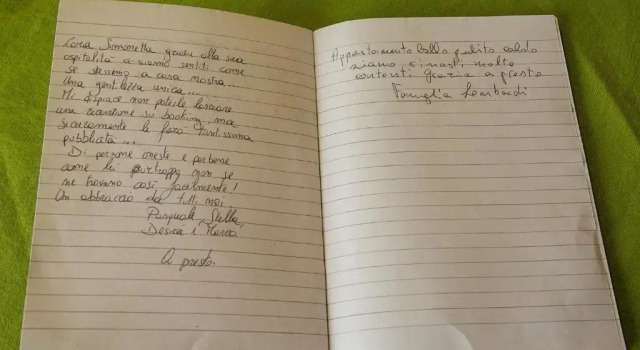 Cara Simonetta grazie alla sua
ospitalità ci siamo sentiti come
se stessimo a casa nostra...
Una gentilezza unica...
Mi dispiace non poterle lasciare
una recensione su booking, ma
sicuramente le farò tantissima
pubblicità...
Di persone oneste e perbene
come lei purtroppo non se
ne trovano così facilmente!
Un abbraccio da tutti noi
Pasquale, Stella,
Desirèe e Marco
A presto.
Appartamento bello pulito caldo
siamo rimasti molto
contenti Grazie a presto
Famiglia Lombardi